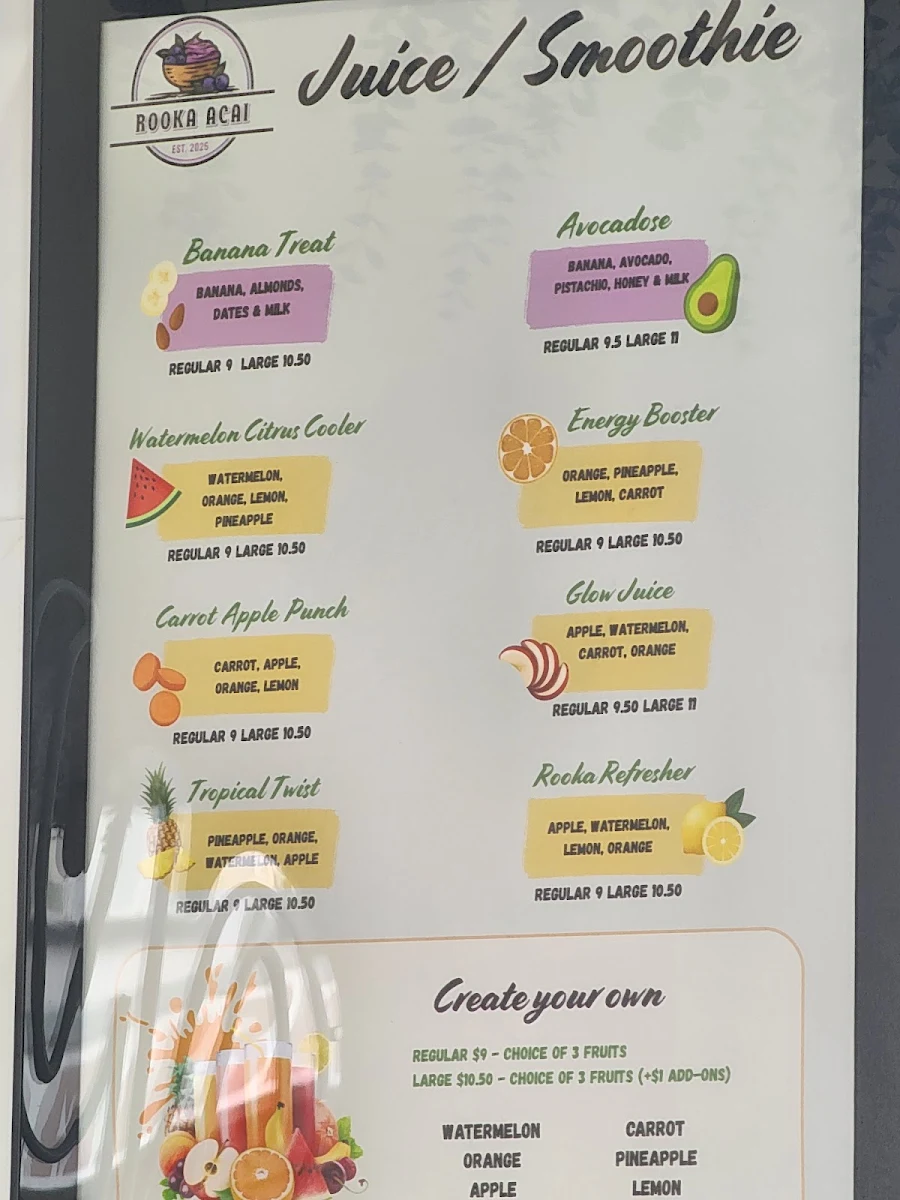 Juice / Smoothie
ROOKA AÇAI
EST. 2025
Banana Treat
BANANA, ALMONDS,
DATES & MILK
REGULAR 9 LARGE 10.50
Avocadose
BANANA, AVOCADO,
PISTACHIO, HONEY & MILK
REGULAR 9.5 LARGE 11
Watermelon Citrus Cooler
WATERMELON,
ORANGE, LEMON,
PINEAPPLE
REGULAR 9 LARGE 10.50
Energy Booster
ORANGE, PINEAPPLE,
LEMON, CARROT
REGULAR 9 LARGE 10.50
Carrot Apple Punch
CARROT, APPLE,
ORANGE, LEMON
REGULAR 9 LARGE 10.50
Glow Juice
APPLE, WATERMELON,
CARROT, ORANGE
REGULAR 9.50 LARGE 11
Tropical Twist
PINEAPPLE, ORANGE,
WATERMELON, APPLE
REGULAR 9 LARGE 10.50
Rooka Refresher
APPLE, WATERMELON,
LEMON, ORANGE
REGULAR 9 LARGE 10.50
Create your own
REGULAR $9 - CHOICE OF 3 FRUITS
LARGE $10.50 - CHOICE OF 3 FRUITS (+$1 ADD-ONS)
WATERMELON
ORANGE
APPLE
CARROT
PINEAPPLE
LEMON